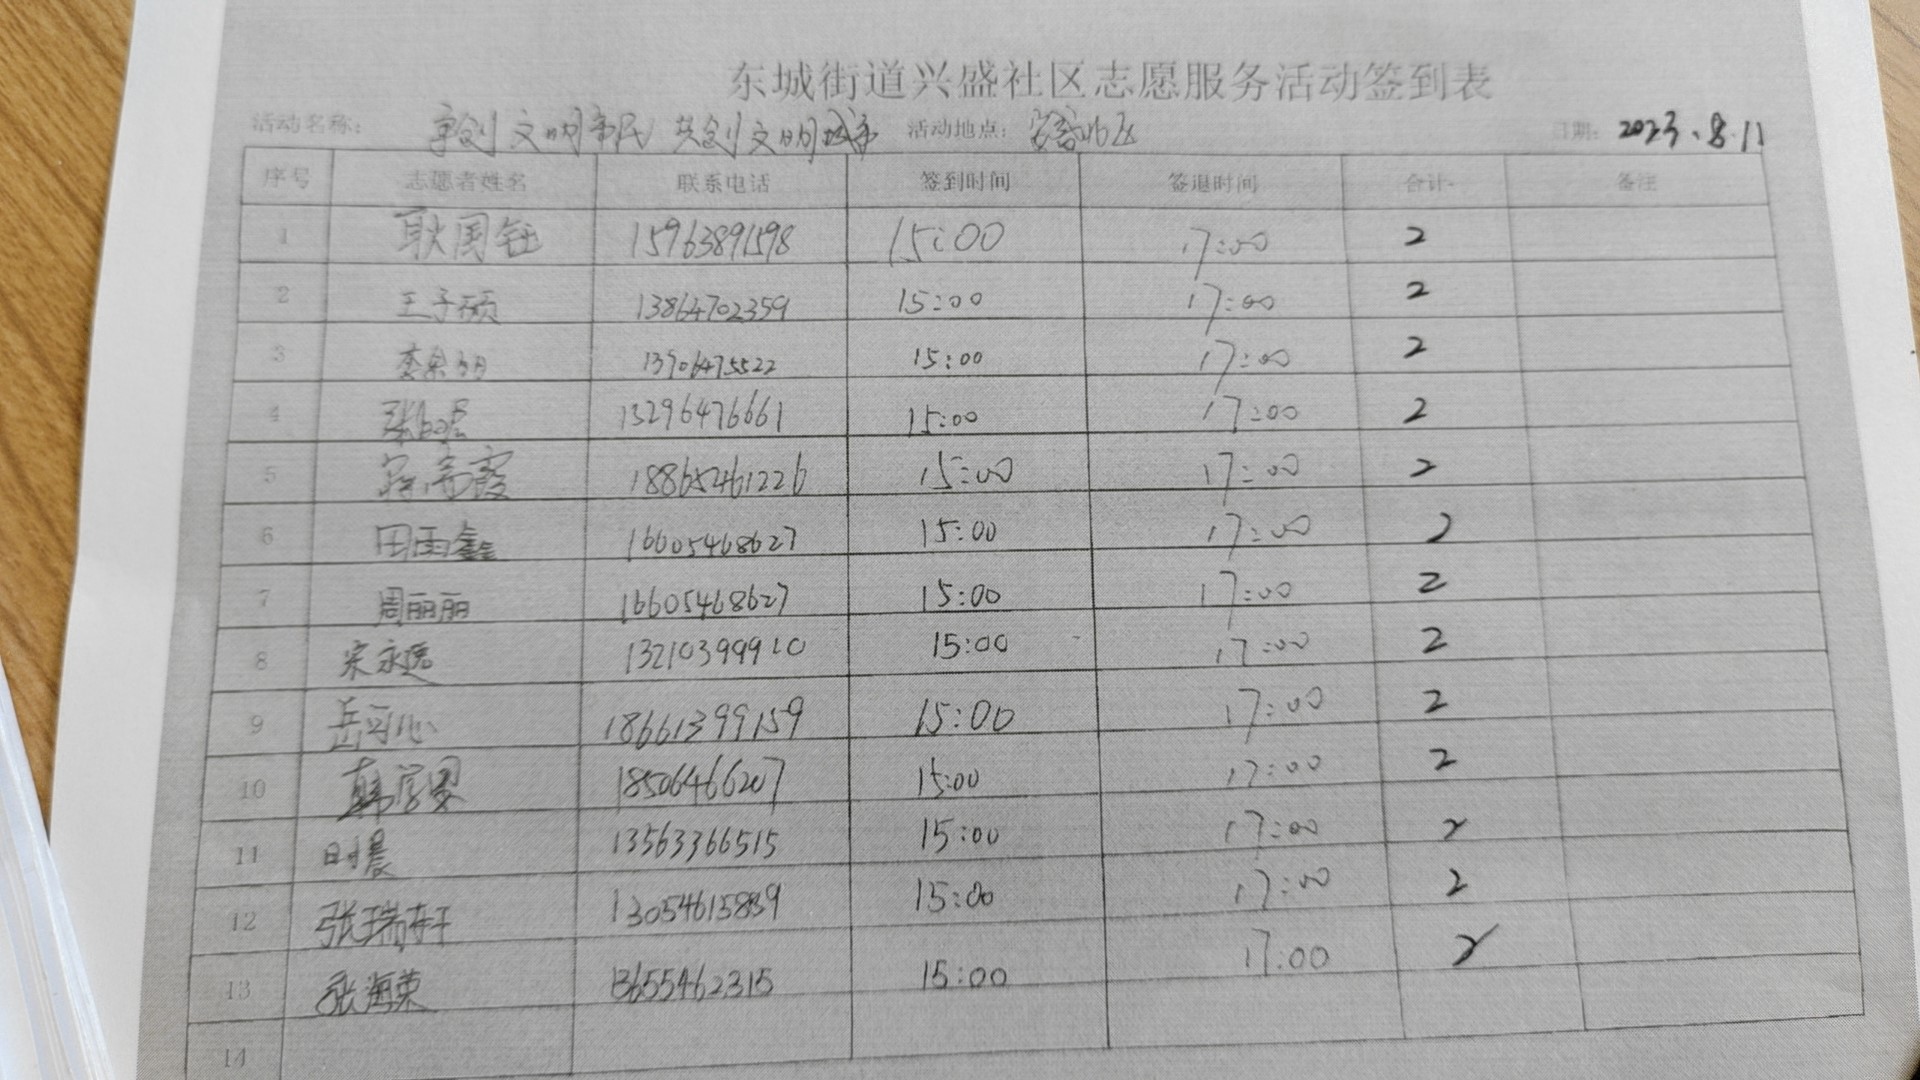 东城街道兴盛社区志愿服务活动签到表
活动名称: 争创文明市民 共创文明城市 活动地点: 安泰北区 日期: 2023.8.11
序号 志愿者姓名 联系电话 签到时间 签退时间 合计 备注
1 耿国钰 15963891598 15:00 17:00 2
2 王子硕 13864702359 15:00 17:00 2
3 13706475522 15:00 17:00 2
4 13296476661 15:00 17:00 2
5 18865461226 15:00 17:00 2
6 田雨鑫 16605468627 15:00 17:00 2
7 周丽丽 16605468627 15:00 17:00 2
8 宋永远 13210399910 15:00 17:00 2
9 岳可心 18661399159 15:00 17:00 2
10 18506466207 15:00 17:00 2
11 时晨 13563366515 15:00 17:00 2
12 张瑞轩 13054615839 15:00 17:00 2
13 张海荣 13655462315 15:00 17:00 2
14